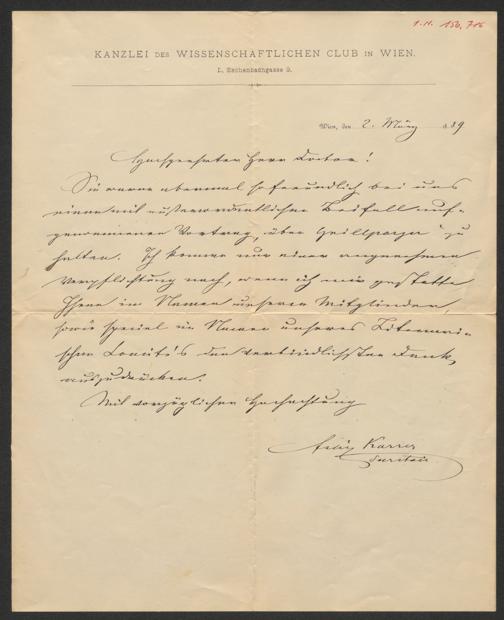 I.N. 156,716
KANZLEI DES WISSENSCHAFTLICHEN CLUB IN WIEN.
I., Eschenbachgasse 9.
Wien, den 2. März 1889
Hochgeehrter Herr Doctor!
Sie waren abermal so freundlich bei uns
einen mit außerordentlichem Beifall auf-
genommenen Vortrag „über Grillparzer“ zu
halten. Ich komme nur einer angenehmen
Verpflichtung nach, wenn ich mir gestatte
Ihnen im Namen unserer Mitglieder,
sowie speciel im Namen unseres Literari-
schen Comité's den verbindlichsten Dank,
auszudrücken.
Mit vorzüglicher Hochachtung
Felix Karrer